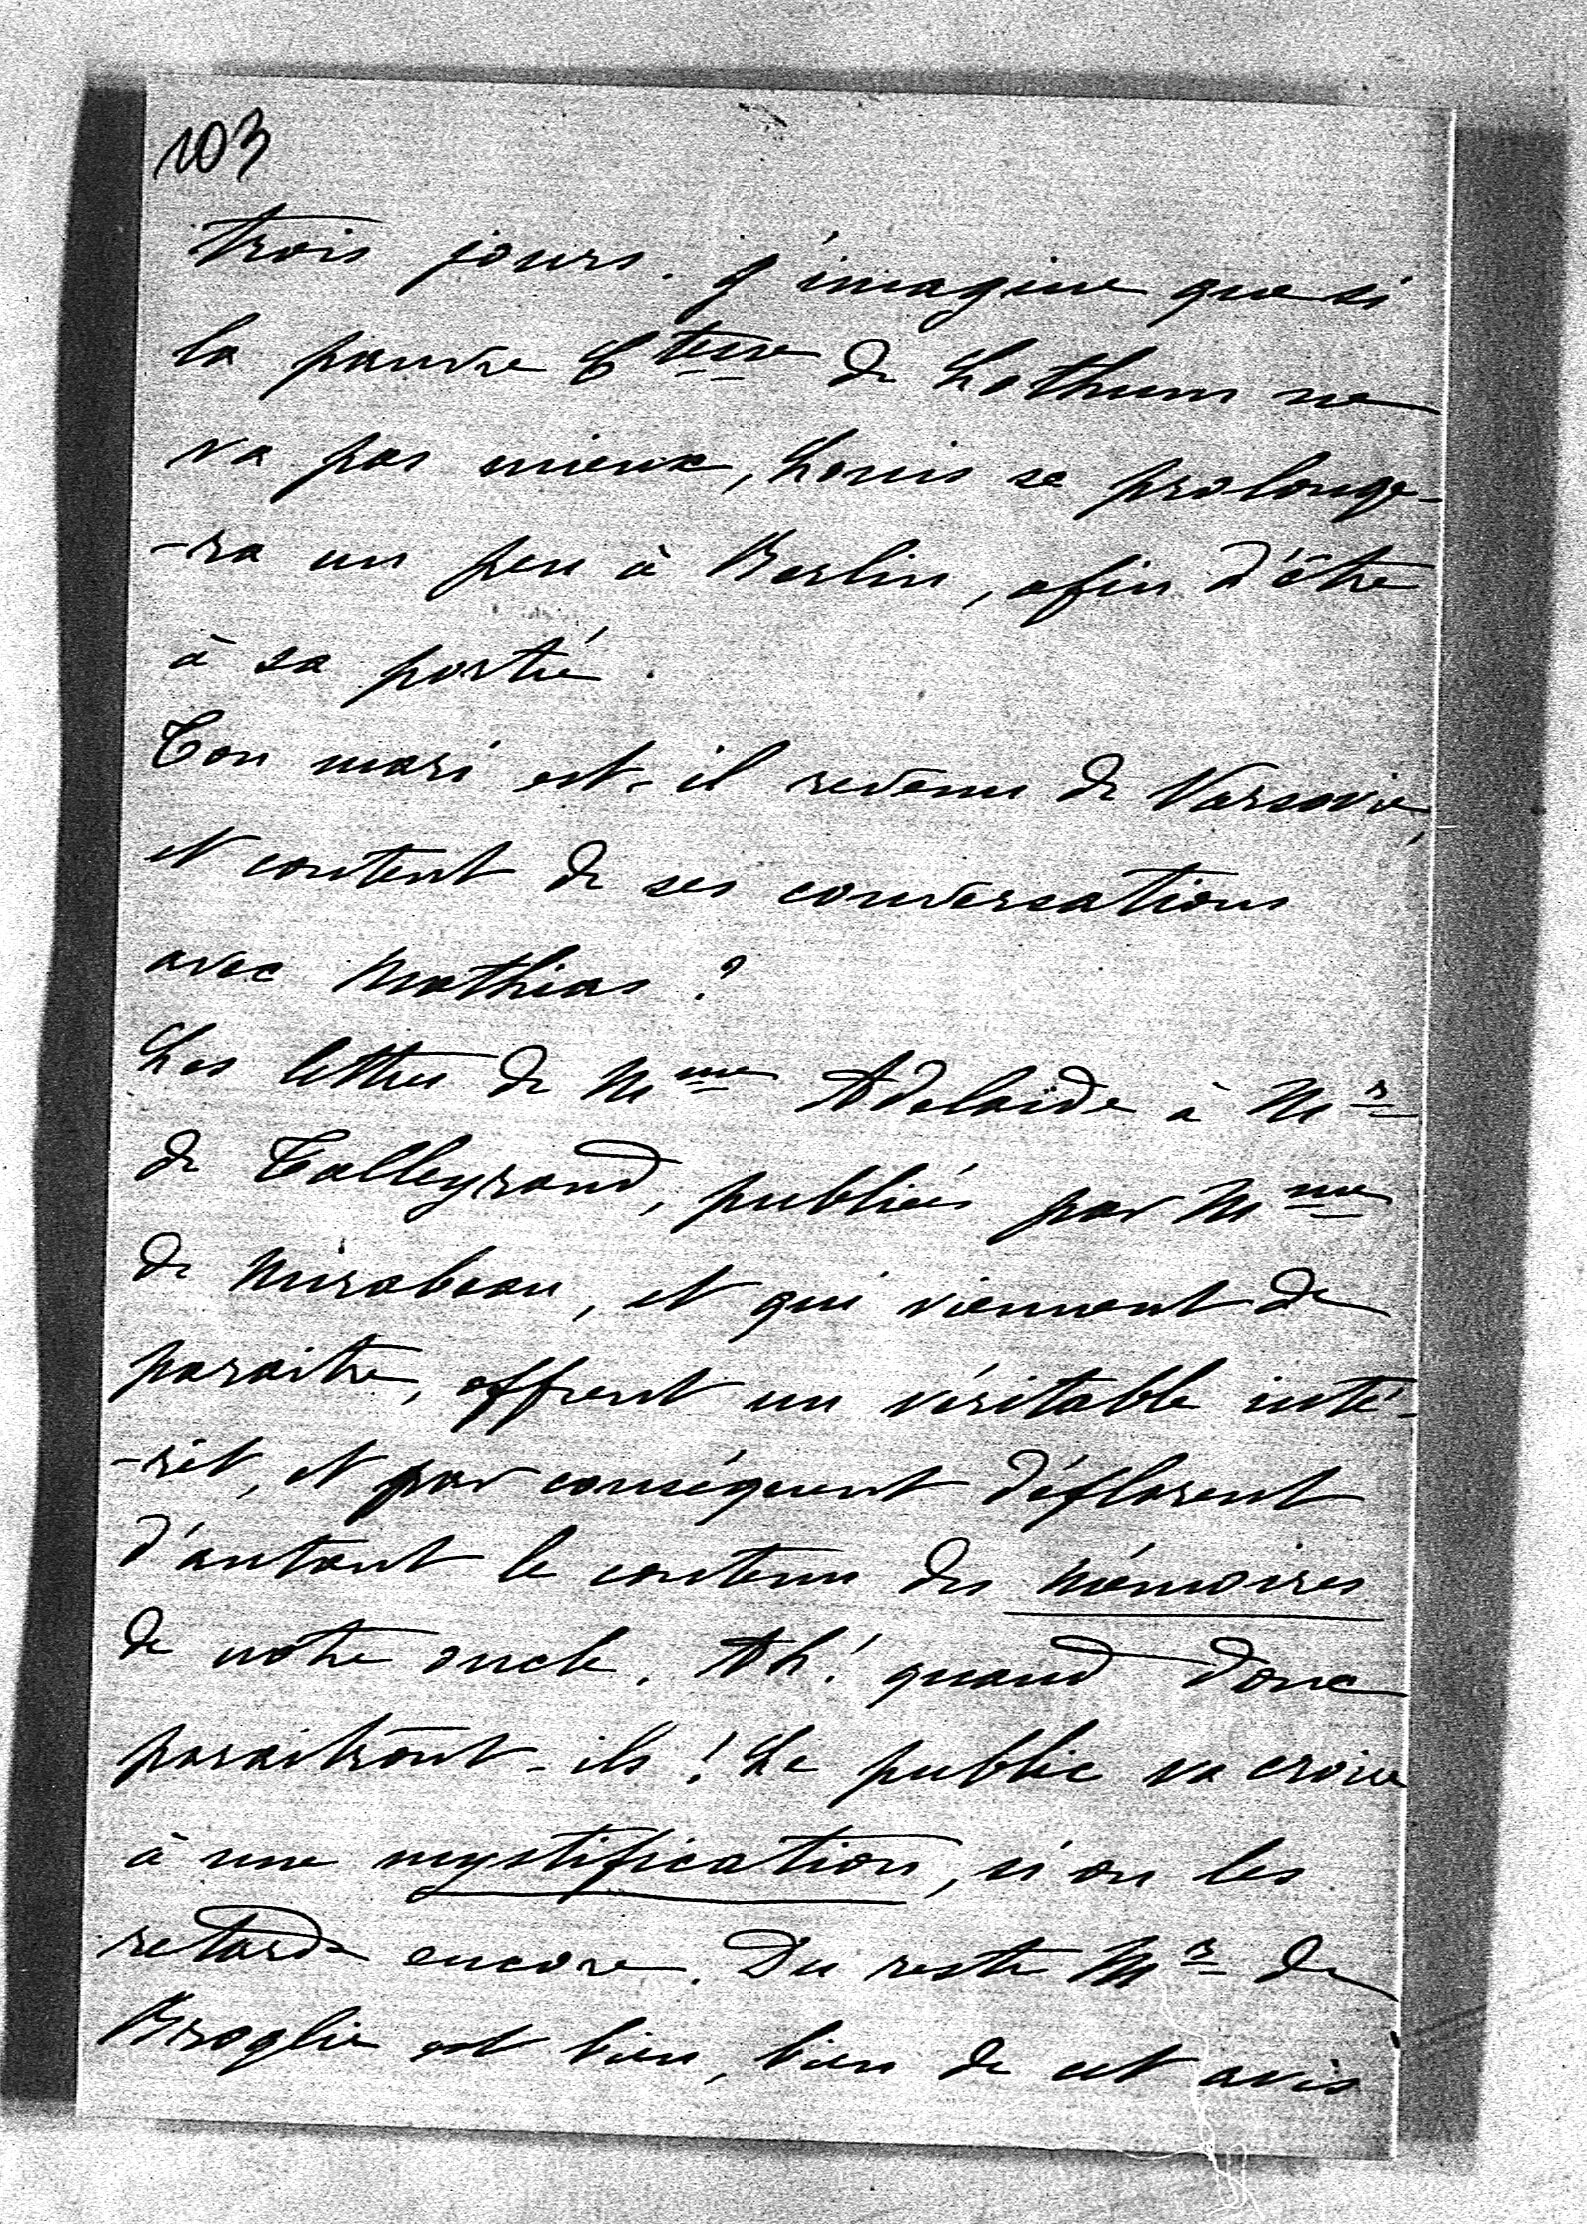 103
trois jours. J'imagine que si
la pauvre Ctesse de Lothum ne
va pas mieux, Louis se prolonge-
-ra un peu à Berlin, afin d'être
à sa portié.
Ton mari est-il revenu de Varsovie,
et content de ses conversations
avec Mathias ?
Les lettres de Mme Adelaïde à Mr
de Talleyrand, publiées par Mme
de Mirabeau, et qui viennent de
paraitre, offrent un véritable inté-
-rêt, et par conséquent déflorent
d'autant le contenu des mémoires
de notre oncle. Ah! quand donc
paraitront-ils ! Le public va croire
à une mystification, si on les
retarde encore. Du reste Mr de
Broglie est bien, bien de cet avis